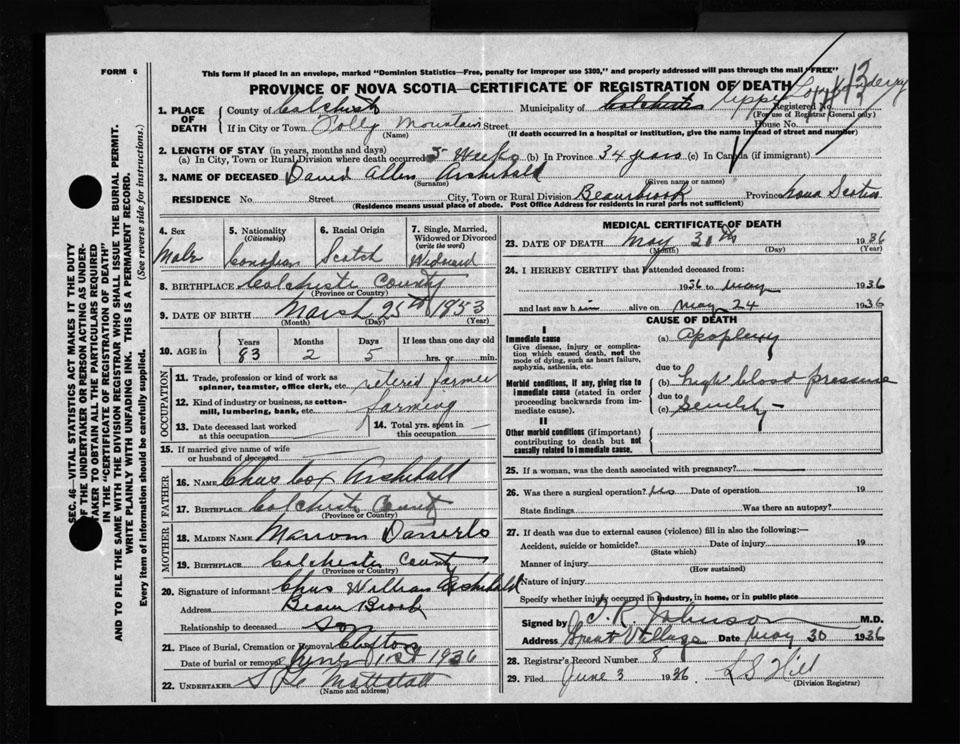 FORM 6
This form if placed in an envelope, marked "Dominion Statistics—Free, penalty for improper use $300," and properly addressed will pass through the mail "FREE"
PROVINCE OF NOVA SCOTIA—CERTIFICATE OF REGISTRATION OF DEATH
1. PLACE OF DEATH
County of Colchester Municipality of Colchester Upper Londonderry
Registered No.
(For use of Registrar General only)
If in City or Town Folly Mountain Street House No.
(Name) (If death occurred in a hospital or institution, give the name instead of street and number)
2. LENGTH OF STAY (in years, months and days)
(a) In City, Town or Rural Division where death occurred 5 weeks (b) In Province 34 years (c) In Canada (if immigrant)
3. NAME OF DECEASED David Allen Archibald
(Surname) (Given name or names)
RESIDENCE No. Street City, Town or Rural Division Beaverbrook Province Nova Scotia
(Residence means usual place of abode. Post Office Address for residents in rural parts not sufficient)
SEC. 46—VITAL STATISTICS ACT MAKES IT THE DUTY
OF THE UNDERTAKER OR PERSON ACTING AS UNDER-
TAKER TO OBTAIN ALL THE PARTICULARS REQUIRED
IN THE "CERTIFICATE OF REGISTRATION OF DEATH"
AND TO FILE THE SAME WITH THE DIVISION REGISTRAR WHO SHALL ISSUE THE BURIAL PERMIT.
WRITE PLAINLY WITH UNFADING INK. THIS IS A PERMANENT RECORD.
Every item of information should be carefully supplied. (See reverse side for instructions.)
4. Sex
Male
5. Nationality
(Citizenship)
Canadian
6. Racial Origin
Scotch
7. Single, Married, Widowed or Divorced
(write the word)
Widowed
8. BIRTHPLACE Colchester County
(Province or Country)
9. DATE OF BIRTH March 25th 1853
(Month) (Day) (Year)
10. AGE in
Years Months Days If less than one day
83 2 5 hrs. or min.
OCCUPATION
11. Trade, profession or kind of work as spinner, teamster, office clerk, etc. retired farmer
12. Kind of industry or business, as cotton-mill, lumbering, bank, etc. farming
13. Date deceased last worked at this occupation
14. Total yrs. spent in this occupation
15. If married give name of wife or husband of deceased
FATHER
16. NAME Chas Cox Archibald
17. BIRTHPLACE Colchester County
(Province or Country)
MOTHER
18. MAIDEN NAME
19. BIRTHPLACE Colchester County
(Province or Country)
20. Signature of informant Chas William Archibald
Address Beaver Brook
Relationship to deceased son
21. Place of Burial, Cremation or Removal Clifton
Date of burial or removal June 1st 1936
22. UNDERTAKER
(Name and address)
MEDICAL CERTIFICATE OF DEATH
23. DATE OF DEATH May 30th 1936
(Month) (Day) (Year)
24. I HEREBY CERTIFY that I attended deceased from:
1936 to May 1936
and last saw h im alive on May 24 1936
CAUSE OF DEATH
I
Immediate cause
Give disease, injury or complication which caused death, not the mode of dying, such as heart failure, asphyxia, asthenia, etc.
(a) Apoplexy
due to
Morbid conditions, if any, giving rise to immediate cause (stated in order proceeding backwards from immediate cause).
(b) high blood pressure
due to
(c) Senility
II
Other morbid conditions (if important) contributing to death but not causally related to immediate cause.
25. If a woman, was the death associated with pregnancy?
26. Was there a surgical operation? no Date of operation 19
State findings Was there an autopsy?
27. If death was due to external causes (violence) fill in also the following:—
Accident, suicide or homicide? Date of injury 19
(State which)
Manner of injury
(How sustained)
Nature of injury
Specify whether injury occurred in industry, in home, or in public place
Signed by T. R. Johnson M.D.
Address Great Village Date May 30 1936
28. Registrar's Record Number 8
29. Filed June 3 1936 L S Hill
(Division Registrar)